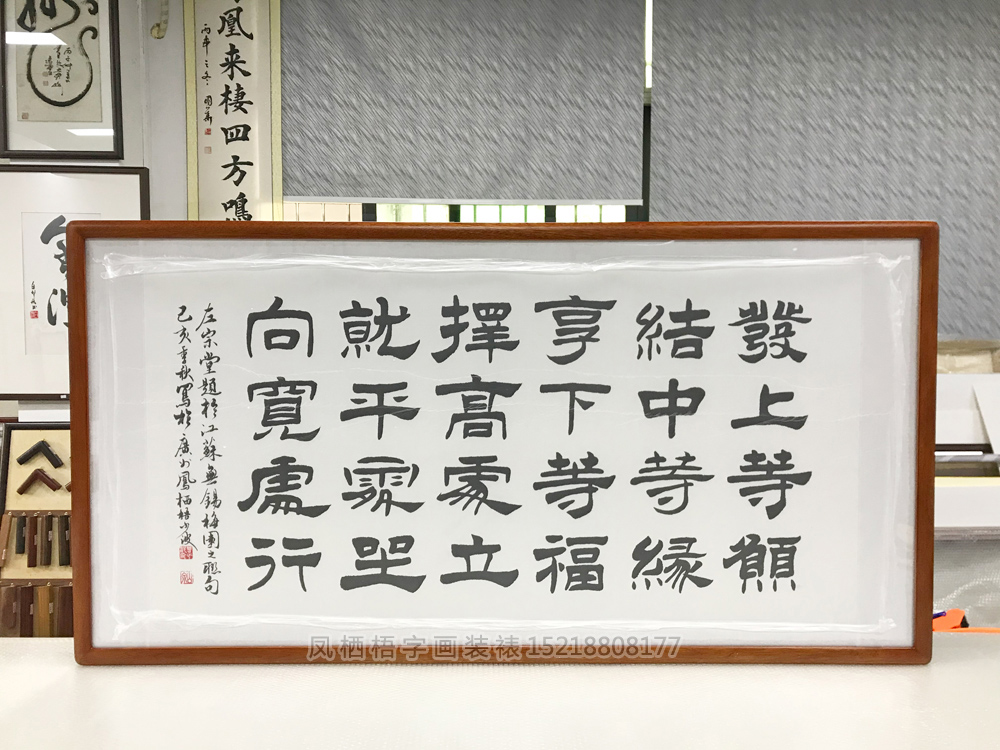 凰来棲四方鳴
發上等願
結中等緣
享下等福
擇高處立
就平處坐
向寬處行
左宗堂題於江蘇無錫梅園之聯句
己亥季秋寫於廣州鳳栖梧
凤栖梧字画装裱15218808177